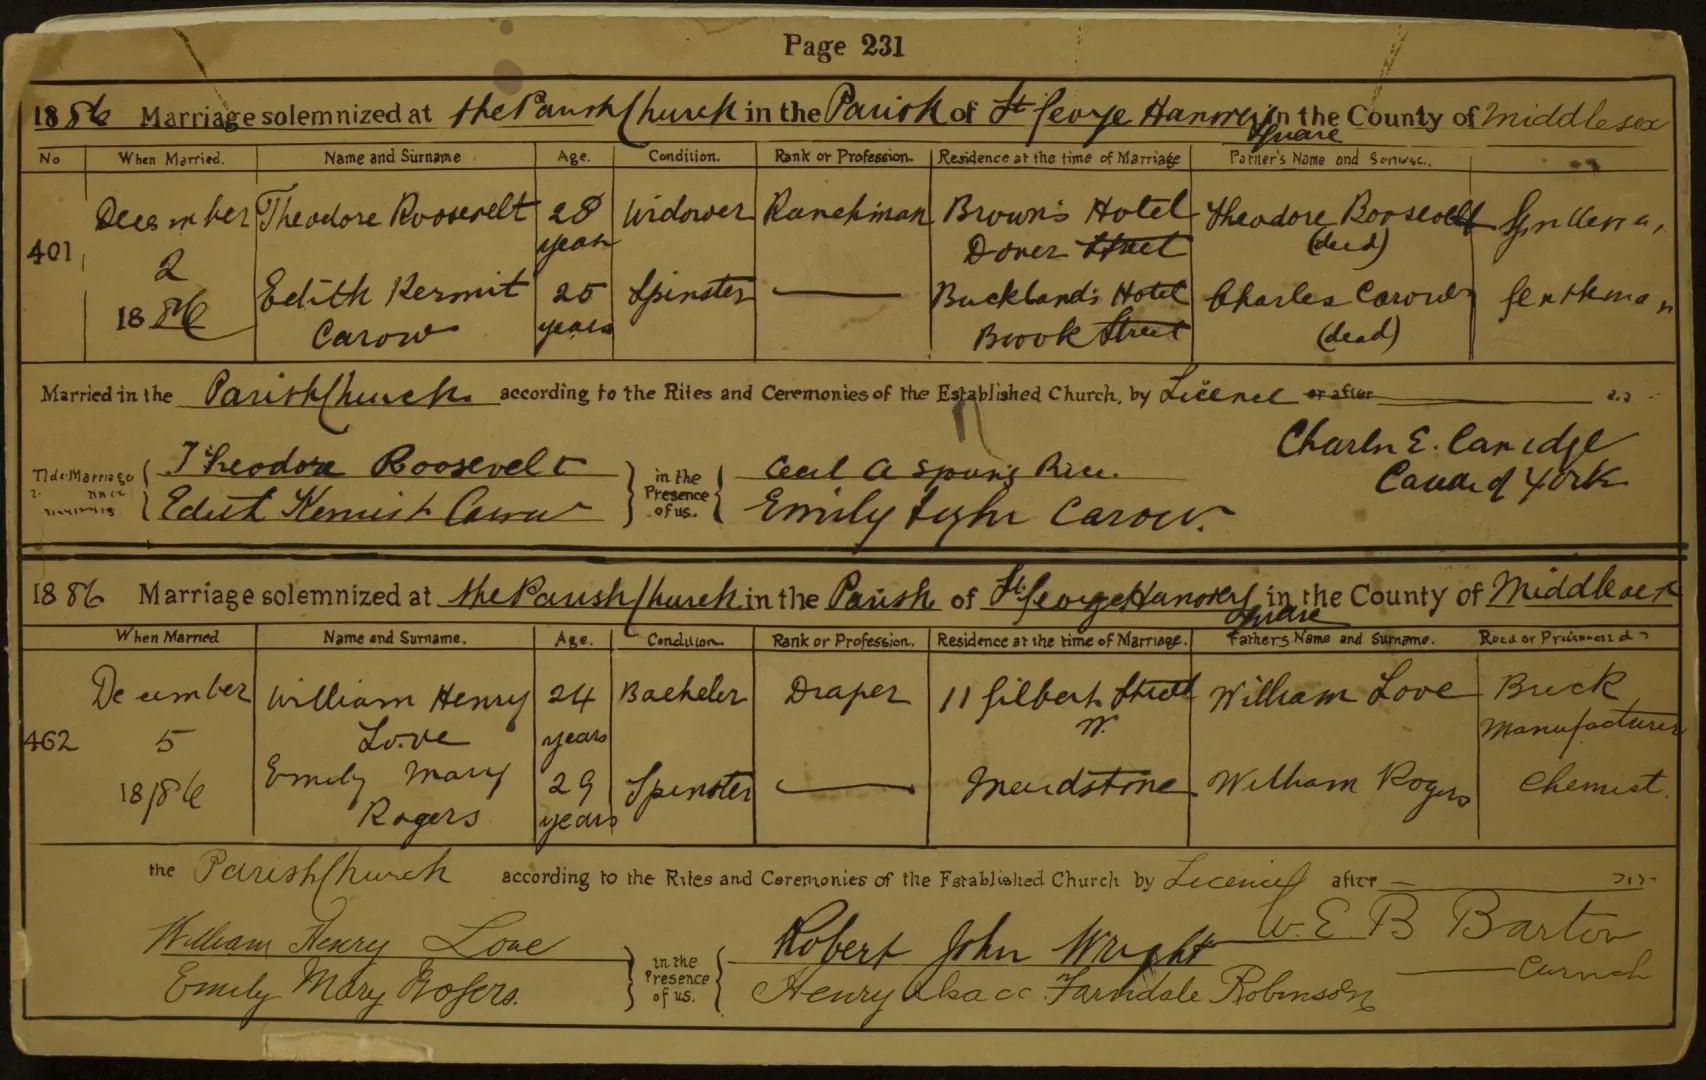 Page 231
1886 Marriage solemnized at the Parish Church in the Parish of St George Hanover Square in the County of Middlesex
No When Married. Name and Surname Age. Condition. Rank or Profession. Residence at the time of Marriage Father's Name and
401 December 2 1886 Theodore Roosevelt 28 years Widower Ranchman Brown's Hotel Dover Street Theodore Roosevelt (dead)
Edith Kermit Carow 25 years Spinster Buckland's Hotel Brook Street Charles Carow (dead) Gentleman
Married in the Parish Church according to the Rites and Ceremonies of the Established Church, by Licence or after
Theodore Roosevelt in the Presence of us. Cecil A Spring Rice. Charles E.
Edith Kermit Carow Emily Carow. Canon of York
1886 Marriage solemnized at the Parish Church in the Parish of St George Hanover Square in the County of Middlesex
When Married Name and Surname. Age. Condition. Rank or Profession. Residence at the time of Marriage. Fathers Name and Surname. or
462 December 5 1886 William Henry Love 24 years Bachelor Draper 11 Gilbert Street W. William Love Brick Manufacturer
Emily Mary Rogers 29 years Spinster Maidstone William Rogers Chemist.
the Parish Church according to the Rites and Ceremonies of the Established Church by Licence after
William Henry Love in the Presence of us. Robert John Wright W. E B Barton
Emily Mary Rogers. Henry Isaac Farndale Robinson